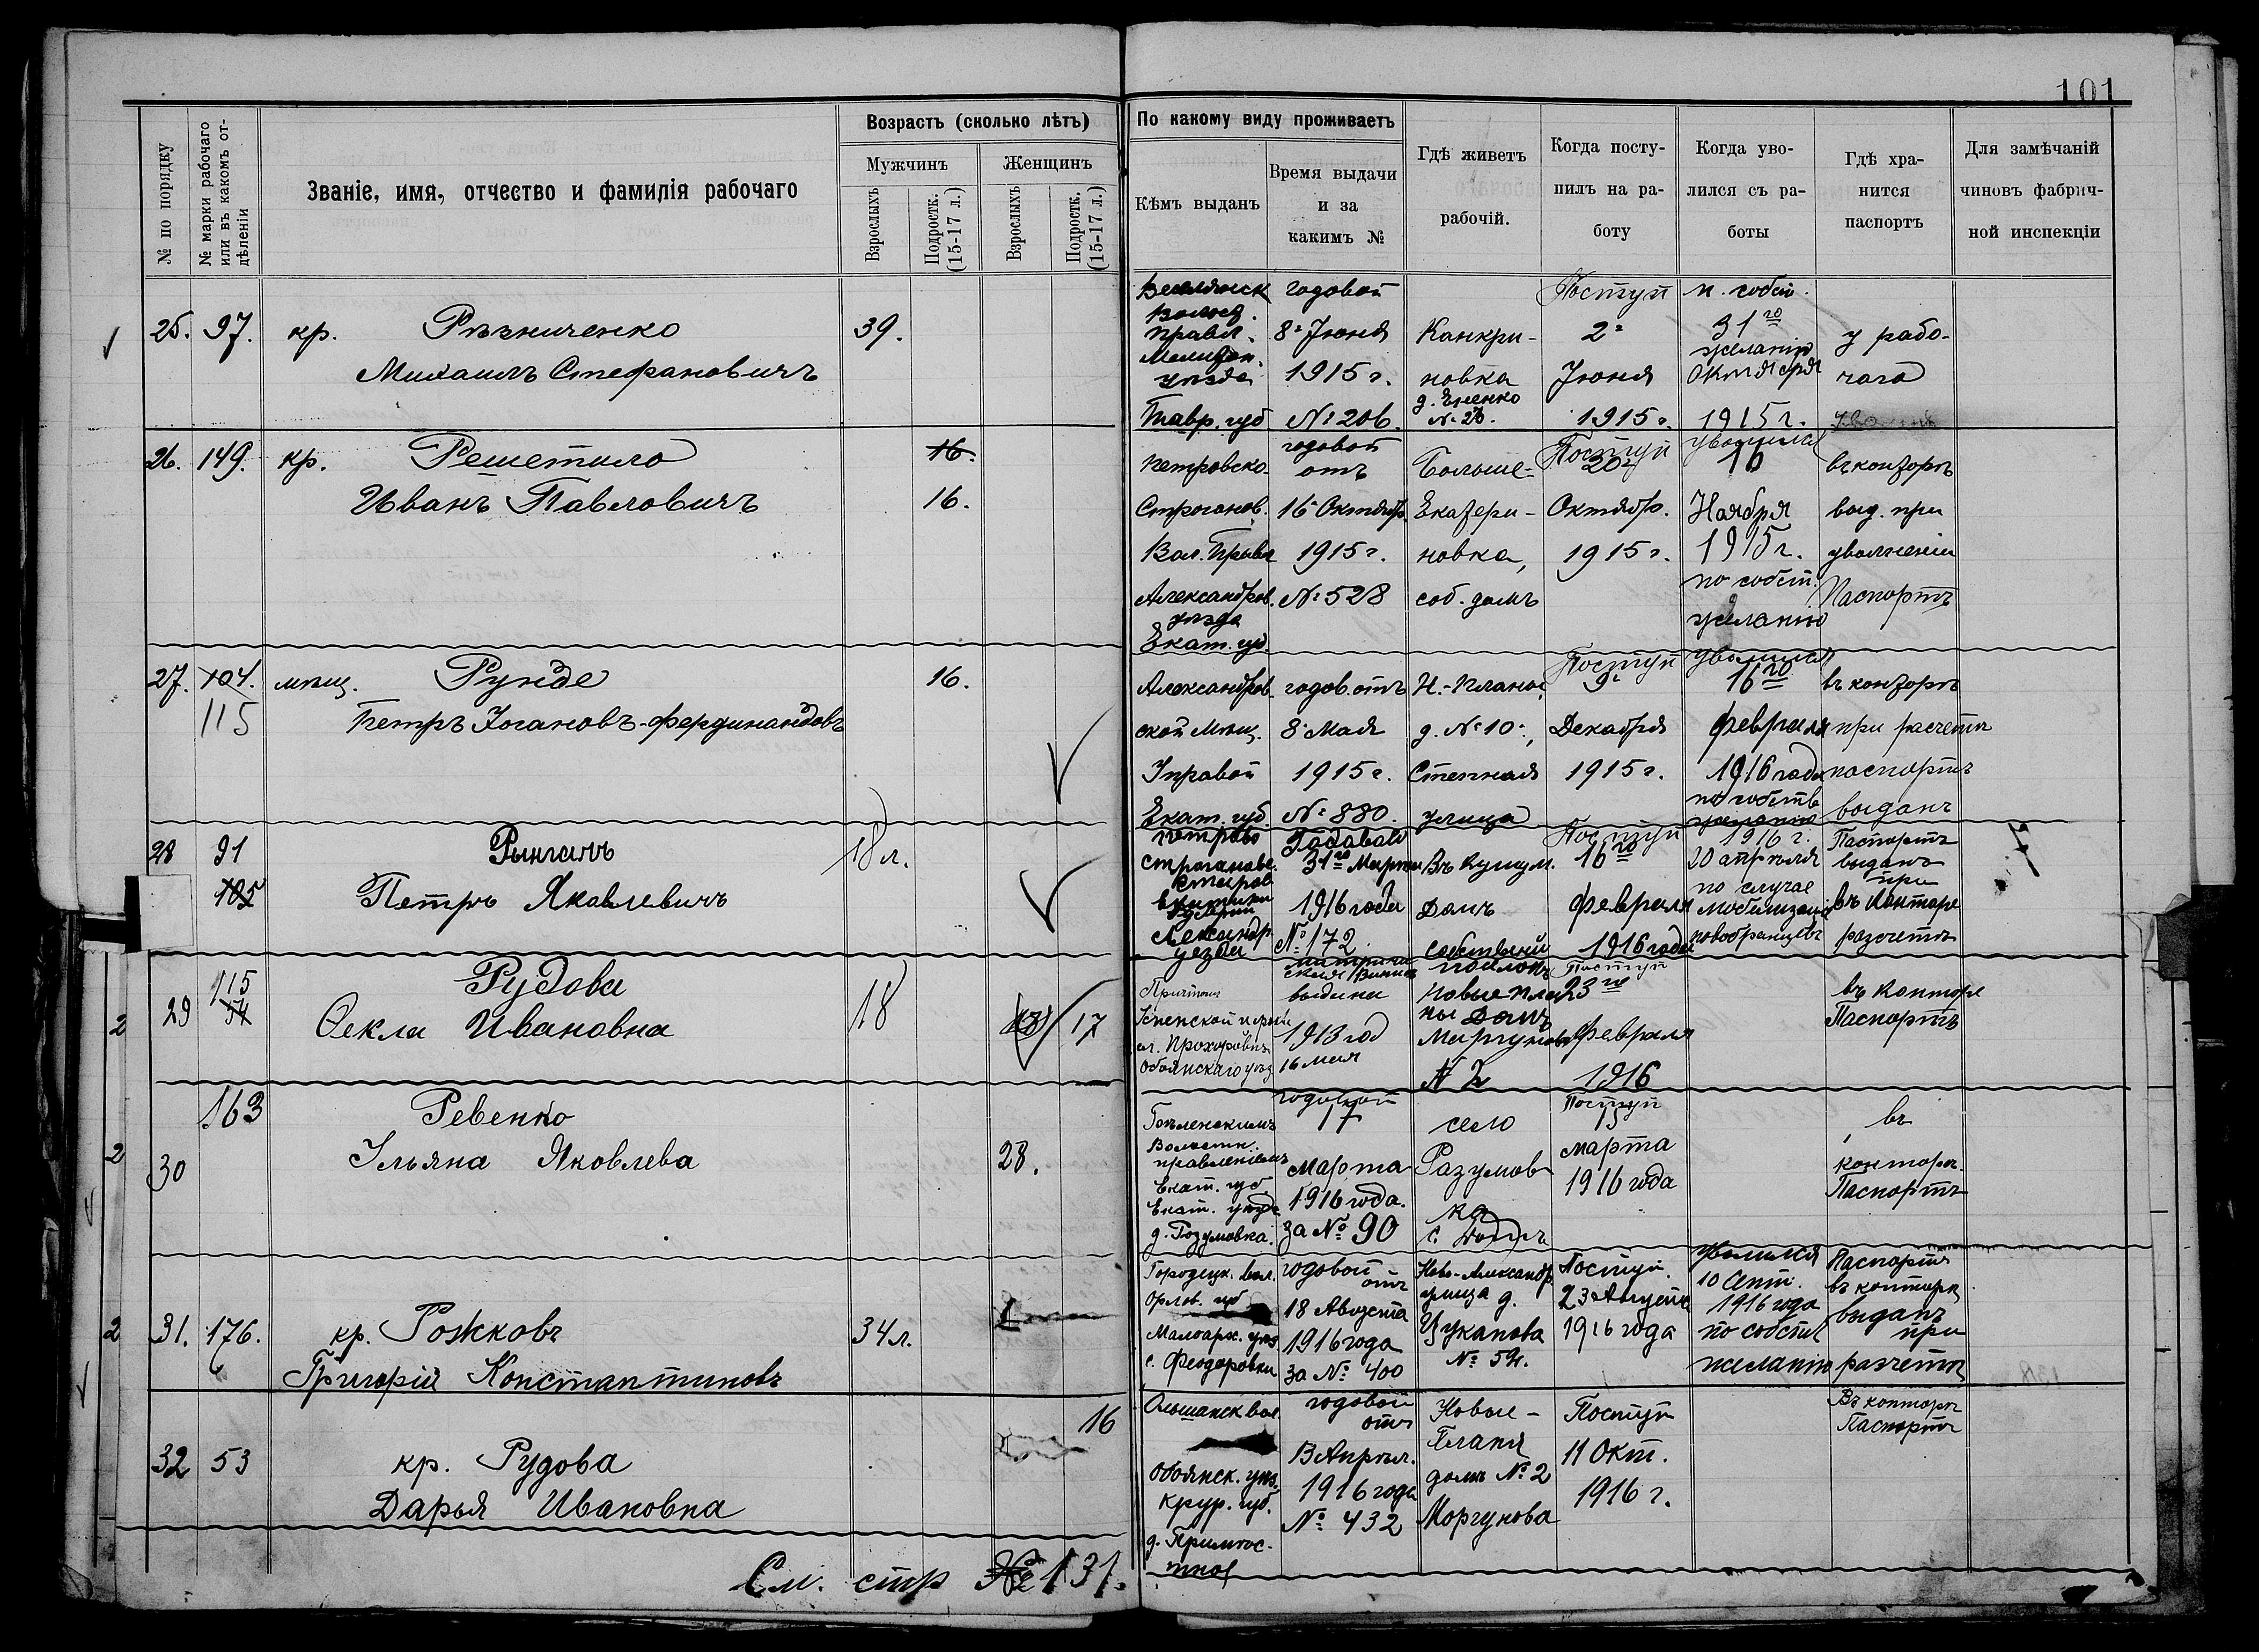 101
№ по порядку
№ марки рабочаго или въ какомъ отдѣленіи
Званіе, имя, отчество и фамилія рабочаго
Возрастъ (сколько лѣтъ)
Мужчинъ
Женщинъ
Взрослыхъ
Подростк. (15-17 л.)
Взрослыхъ
Подростк. (15-17 л.)
По какому виду проживаетъ
Кѣмъ выданъ
Время выдачи и за какимъ №
Гдѣ живетъ рабочій.
Когда посту-
пилъ на ра-
боту
Когда уво-
лился съ ра-
боты
Гдѣ хра-
нится
паспортъ
Для замѣчаній
чиновъ фабрич-
ной инспекціи
25. 97. кр. Рѣзниченко 39.
Михаилъ Стефановичъ
правл.
уѣзда
Тавр. губ
годовой
8 Июня
1915 г.
№ 206.
Канкри-
новка
№ 26.
Поступ
2
Июня
1915 г.
п. собст.
31го
желанію
Октября
1915 г.
у рабо-
чаго
26. 149. кр. Решетило 16.
Иванъ Павловичъ 16.
Петровско-
Строганов.
Вол. Правл
Александров.
уѣзда
Екат. губ
годовой
отъ
16 Октября
1915 г.
№ 528
Больше-
Екатери-
новка,
соб. домъ
Поступ
20
Октября.
1915 г.
уволился
16
Ноября
1915 г.
по собст.
желанію
въ конторѣ
выд. при
увольненіи
Паспортъ
27. 104. мѣщ. Рунде 16.
115 Петръ Іогановъ-Фердинандовъ
Александров-
ской Мѣщ.
Управой
Екат. губ.
годов. отъ
8 Мая
1915 г.
№ 880.
Н.-Планы,
д. № 10,
Степная
улица
Поступ
9
Декабря
1915 г.
уволился
16го
февраля
1916 года
по собств
желанію
въ конторѣ
при расчетѣ
паспортъ
выданъ
28 91 Рынгачъ 18 л.
105 Петръ Яковлевичъ
петрово
строганове.
уезда
Годавой
31го Марта
1916 года
№ 172
Домъ
Поступ
16го
февраля
1916 года
1916 г.
20 апрѣля
по случае
мобилизаціи
новобранцевъ
Паспортъ
выданъ
при
въ Конторе
разсчетъ
29 115 Рудова 18
54 Фекла Ивановна 18 17
Успенской церкви
Обоянскаго уѣзд
выдана
1913 год
16 мая
Новые пла
ны Домъ
Маргунова
№ 2
Поступ
23го
февраля
1916
въ Конторе
Паспортъ
163 Ревенко
30 Ульяна Яковлева 28.
Волостн.
правленіемъ
Екат. губ
Екат. уѣзда
д. Розумовка.
годовой
17
Марта
1916 года.
за № 90
село
Разумов
ка
с. домъ
Поступ
15
марта
1916 года
въ
конторѣ.
Паспортъ
31. 176. кр. Рожковъ 34 л.
Григорій Константиновъ
Городецк. вол.
Орлов. губ
Малоарх. уѣз.
с. Феодоровки
годовой
отъ
18 Августа
1916 года
за № 400
Ново-Александр.
улица д.
Цуканова
№ 59.
Поступ.
23 Августа
1916 года
уволился
10 Сент.
1916 года
по собств
желанію
Паспортъ
въ конторѣ
выданъ
при
расчетѣ
16
32 53 кр. Рудова
Дарья Ивановна
Ольшанск вол.
Обоянск. уѣз.
Курс. губ.
годовой
отъ
13 Апрѣл.
1916 года
№ 432
Новые-
Планы
домъ № 2
Моргунова
Поступ
11 Окт.
1916 г.
Въ конторѣ
Паспортъ
См. стр № 131.